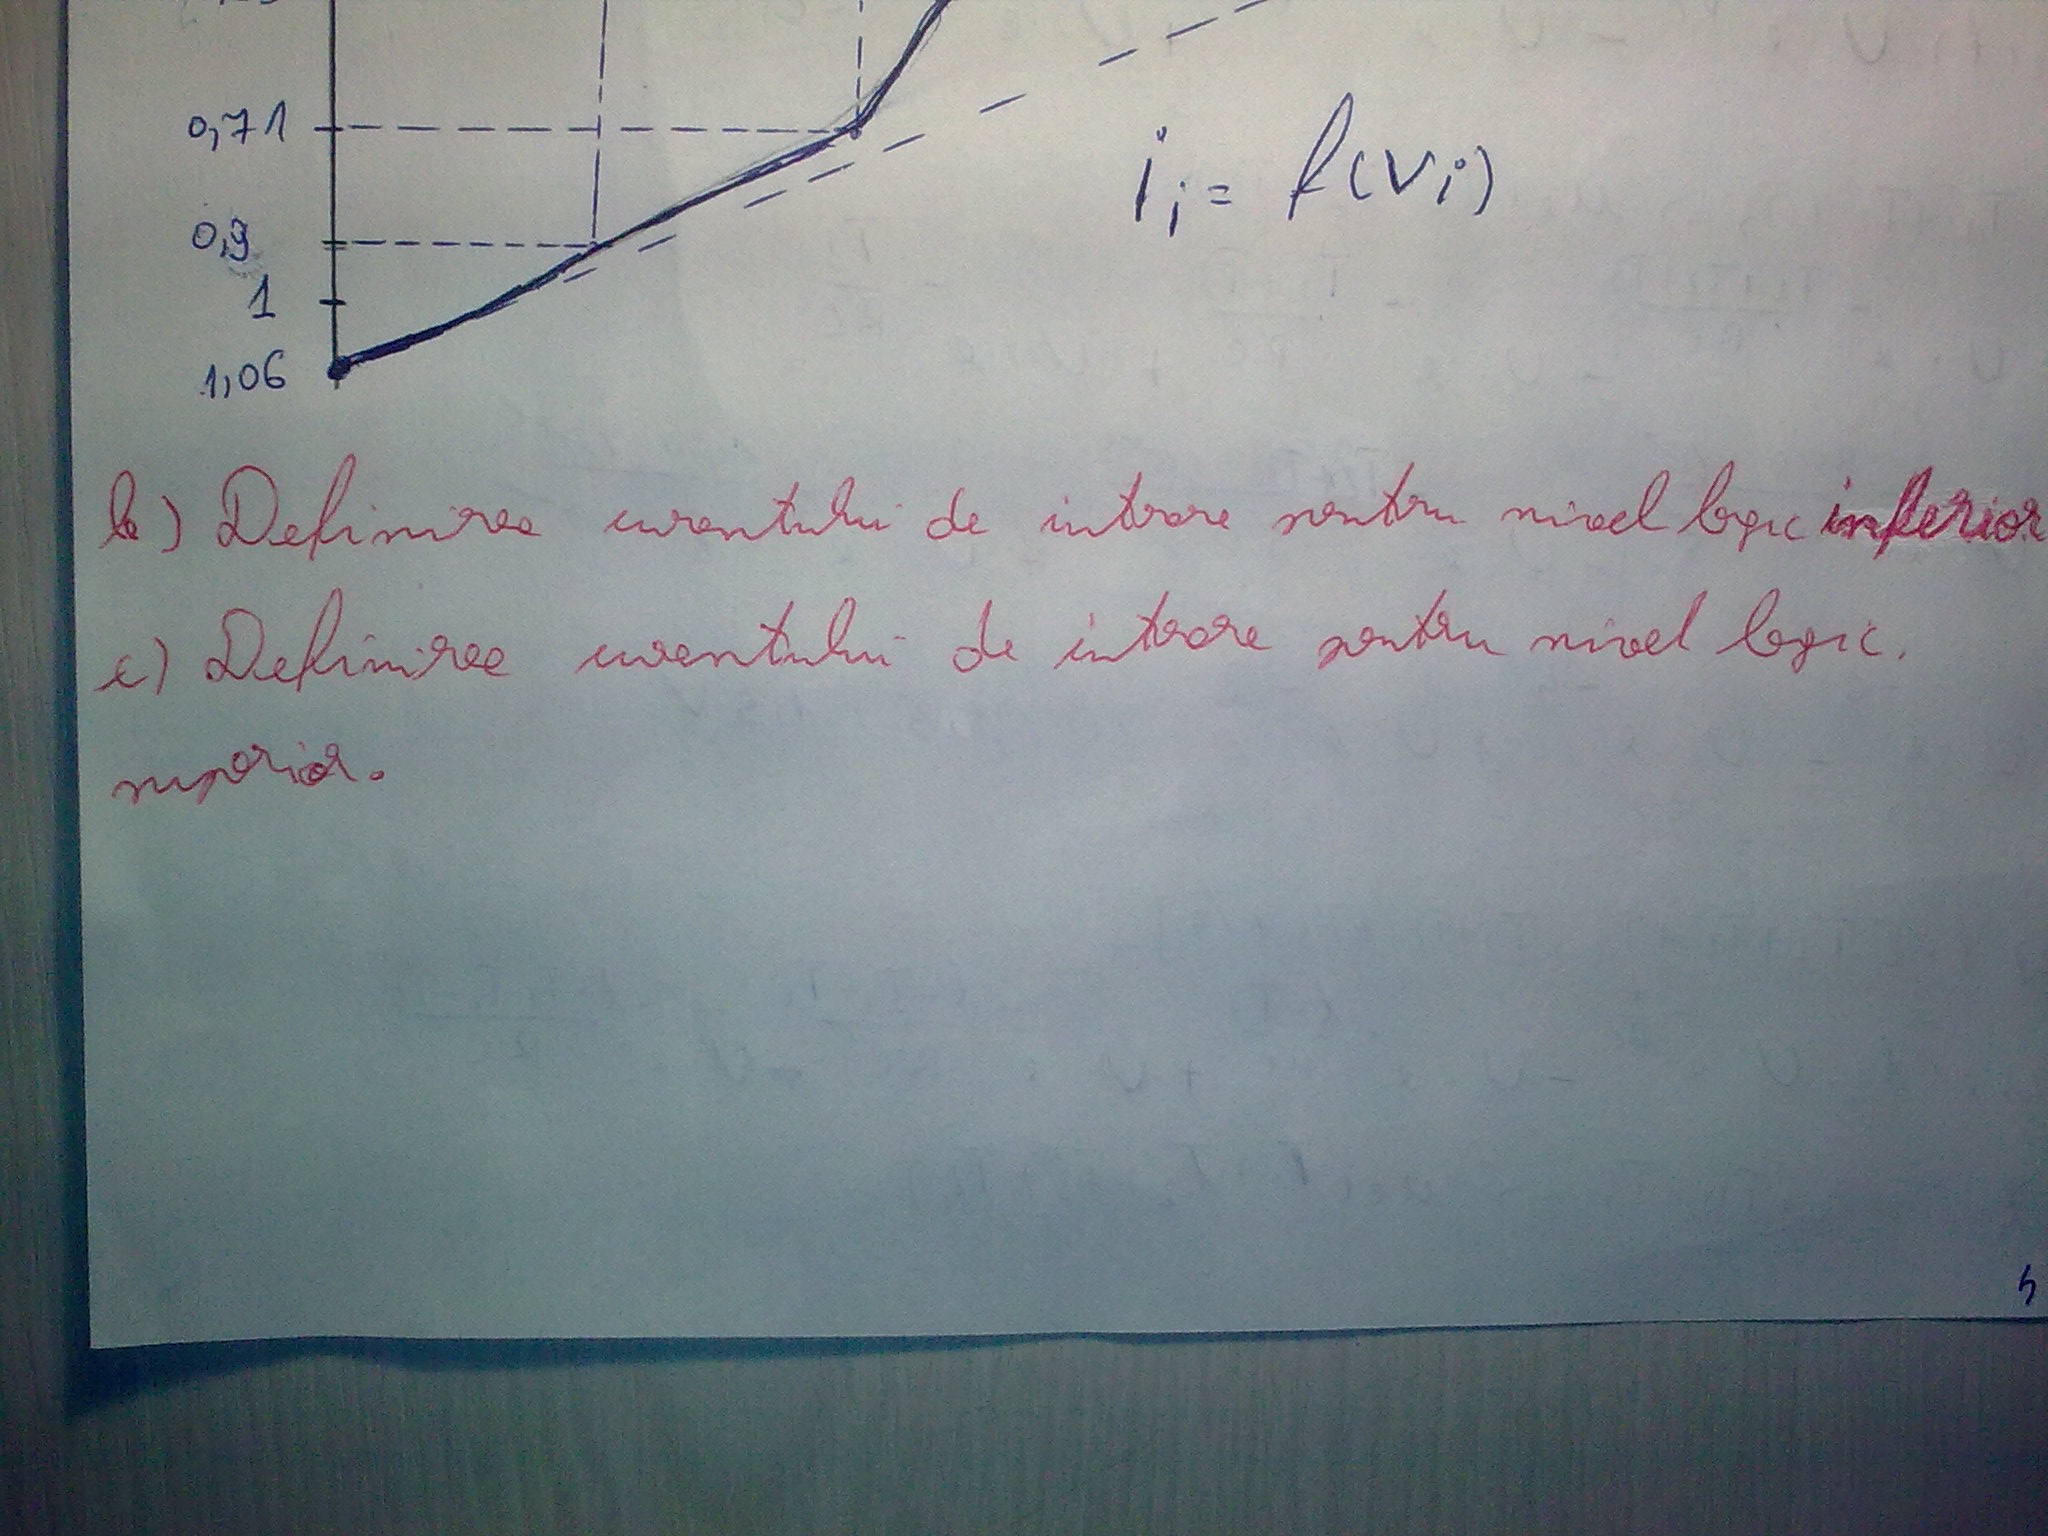 0,71
i i = f(Vi)
0,9
1
1,06
b) Definirea curentului de intrare pentru nivel logic inferior
c) Definirea curentului de intrare pentru nivel logic.
superior.